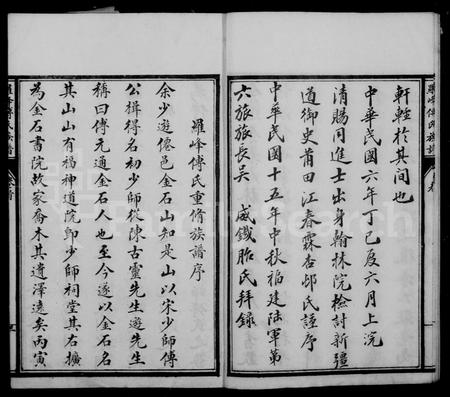 軒輊於其間也
中華民國六年丁巳夏六月上浣
清賜同進士出身翰林院檢討新疆
道御史莆田江春霖杏邨氏謹序
中華民國十五年中秋福建陸軍第
六旅旅長吳威鐵胎氏拜錄
羅峰傅氏重脩族譜序
余少遊僊邑金石山知是山以宋少師傅
公揖得名初少師從陳古靈先生遊先生
稱曰傅元通金石人也至今遂以金石名
其山山有福神道院即少師祠堂其右擴
為金石書院故家喬木其遺澤遠矣丙寅